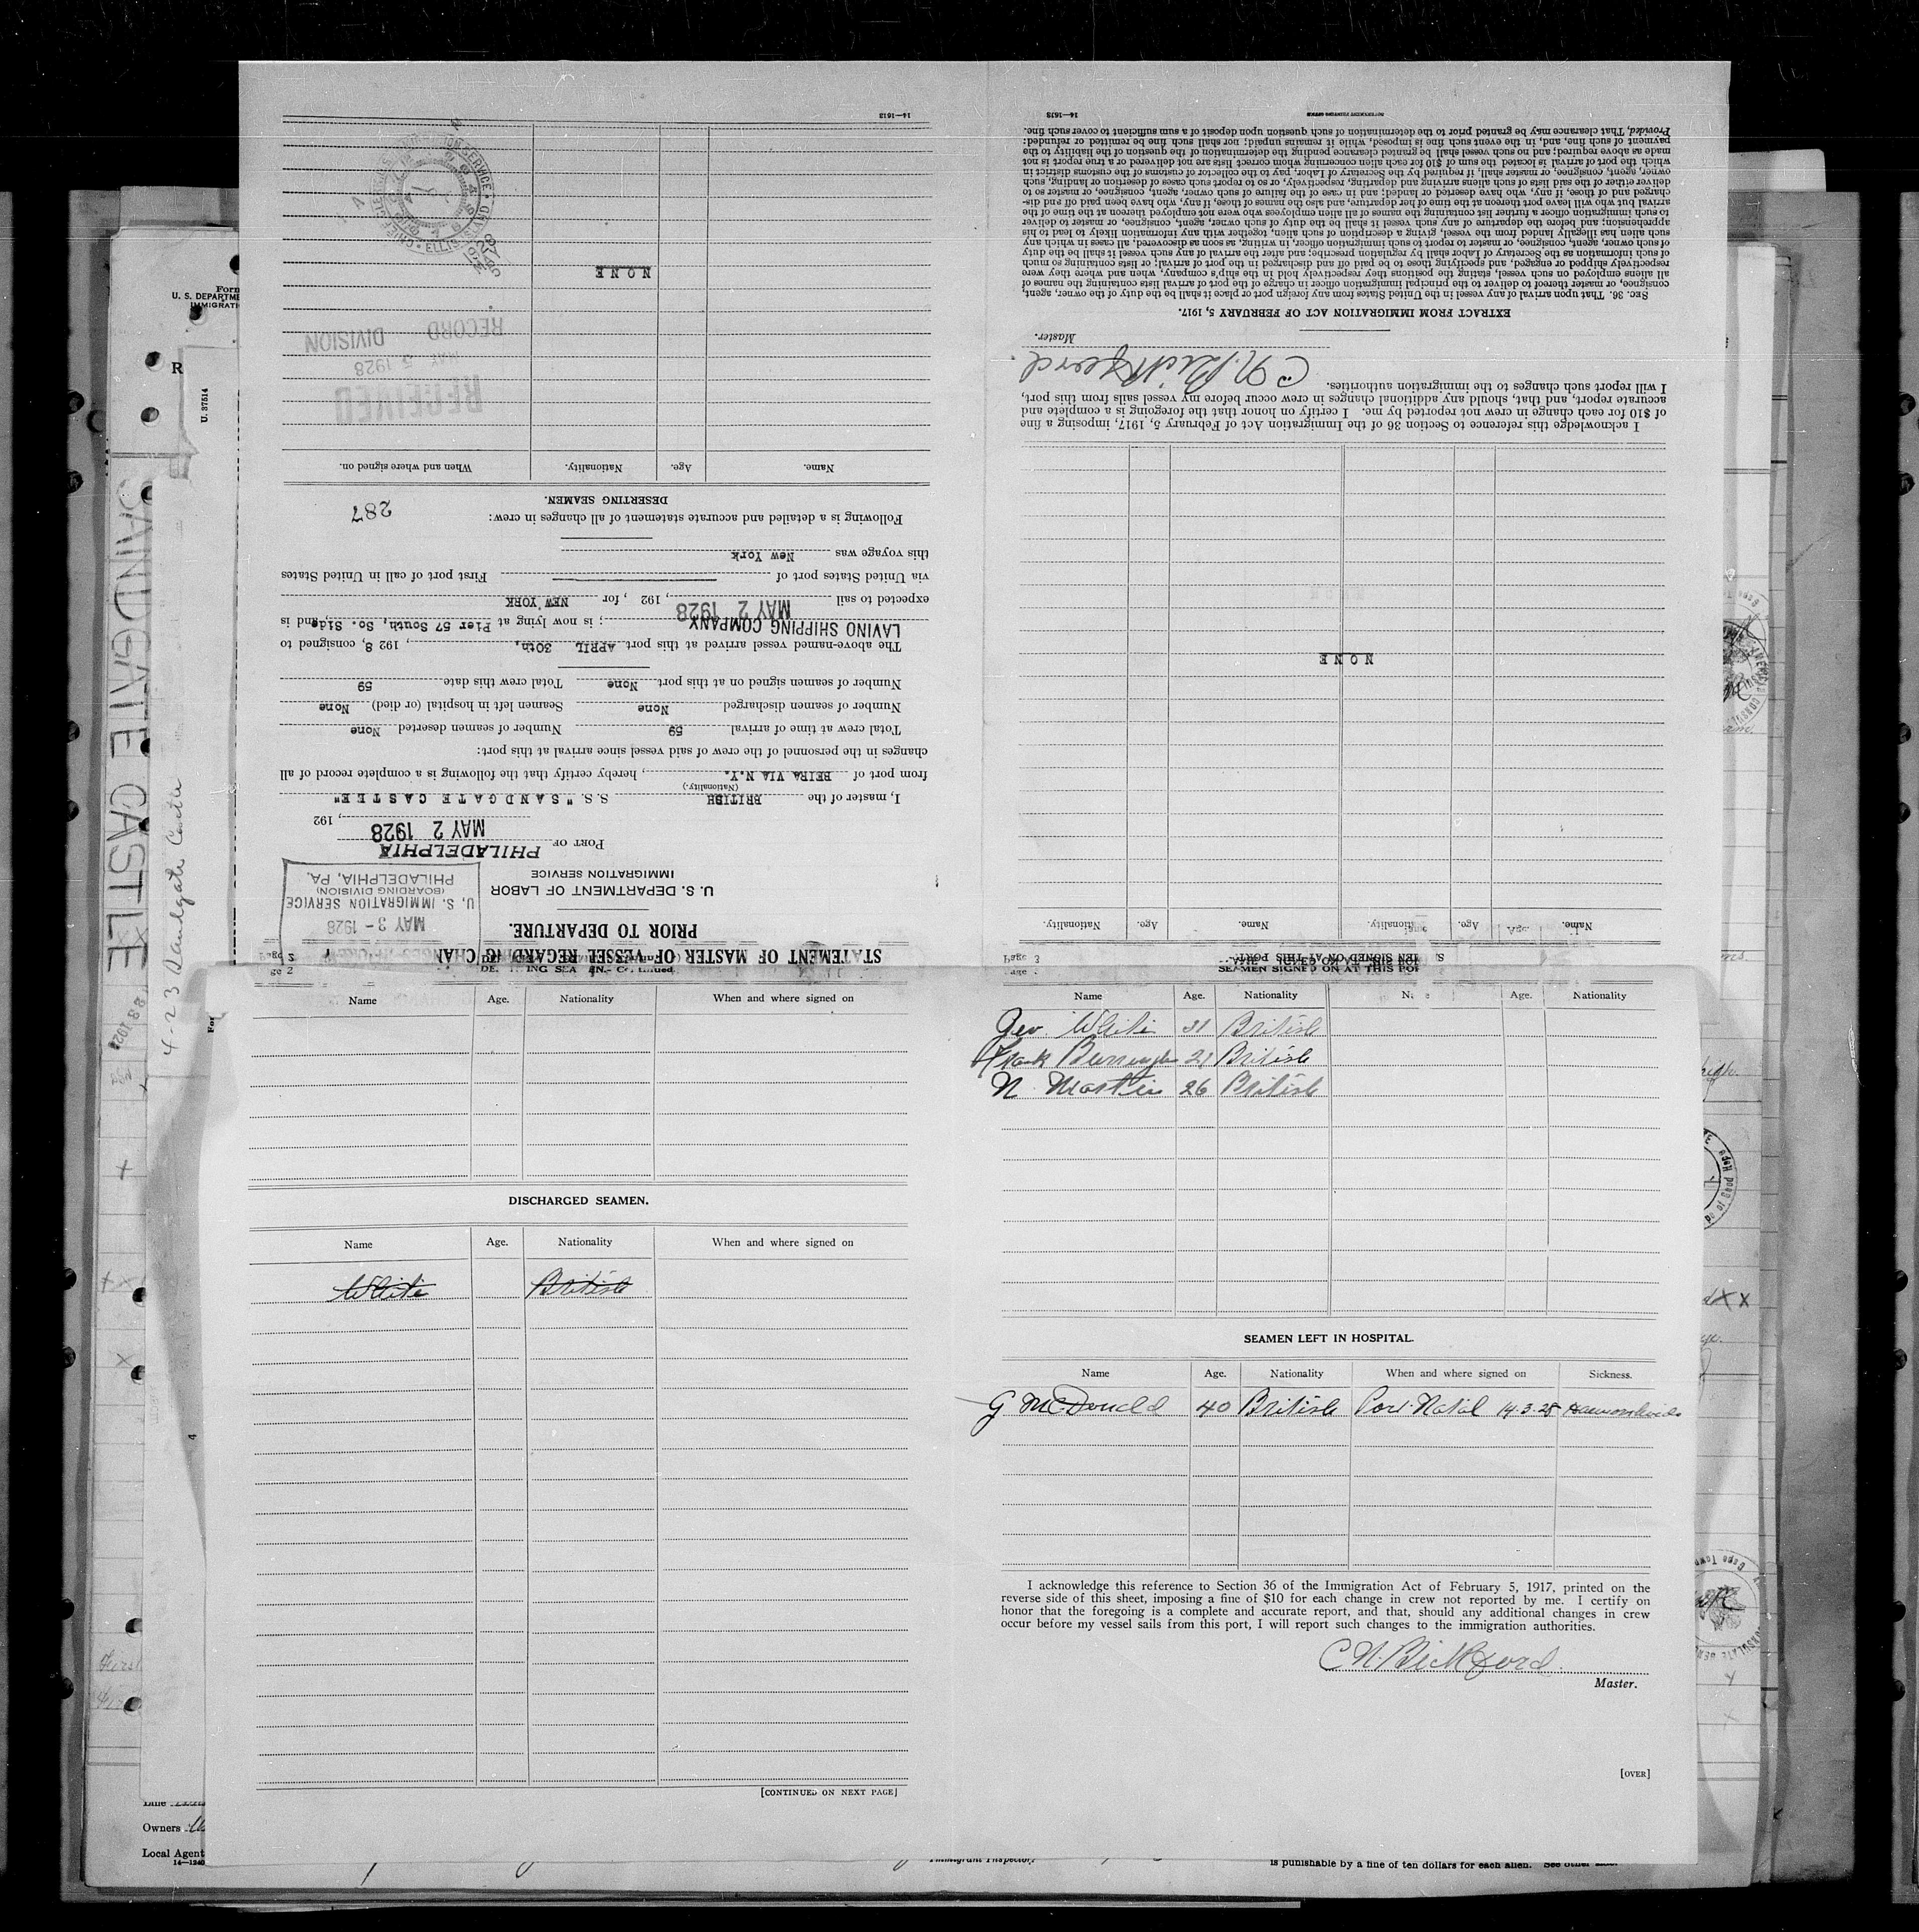 STATEMENT OF MASTER OF VESSEL REGARDING CHAN
PRIOR TO DEPARTURE.
U. S. DEPARTMENT OF LABOR
IMMIGRATION SERVICE
MAY 3 - 1928
U. S. IMMIGRATION SERVICE
(BOARDING DIVISION)
PHILADELPHIA, PA.
PORT OF PHILADELPHIA
MAY 2 1928, 192
I, master of the BRITISH S.S. "SANDGATE CASTLE"
(Nationality.)
from port of BEIRA VIA N.Y., hereby certify that the following is a complete record of all
changes in the personnel of the crew of said vessel since arrival at this port:
Total crew at time of arrival 59 Number of seamen deserted None
Number of seamen discharged None Seamen left in hospital (or died) None
Number of seamen signed on at this port None Total crew this date 59
The above-named vessel arrived at this port APRIL 30th, 192 8, consigned to
LAVINO SHIPPING COMPANY; is now lying at Pier 57 South, So. Side, and is
expected to sail MAY 2 1928, 192 , for NEW YORK
via United States port of First port of call in United States
this voyage was New York
Following is a detailed and accurate statement of all changes in crew:
287
DESERTING SEAMEN.
Name. Age. Nationality. When and where signed on.
RECEIVED
MAY 5 1928
RECORD DIVISION
NONE
14—1613
Page 3
Name. Age. Nationality. Name. Age. Nationality.
NONE
I acknowledge this reference to Section 36 of the Immigration Act of February 5, 1917, imposing a fine
of $10 for each change in crew not reported by me. I certify on honor that the foregoing is a complete and
accurate report, and that, should any additional changes in crew occur before my vessel sails from this port,
I will report such changes to the immigration authorities.
C N. Bickford.
Master.
EXTRACT FROM IMMIGRATION ACT OF FEBRUARY 5, 1917.
SEC. 36. That upon arrival of any vessel in the United States from any foreign port or place it shall be the duty of the owner, agent,
consignee, or master thereof to deliver to the principal immigration officer in charge of the port of arrival lists containing the names of
all aliens employed on such vessel, stating the positions they respectively hold in the ship's company, when and where they were
respectively shipped or engaged, and specifying those to be paid off and discharged in the port of arrival; or lists containing so much
of such information as the Secretary of Labor shall by regulation prescribe; and after the arrival of any such vessel it shall be the duty
of such owner, agent, consignee, or master to report to such immigration officer, in writing, as soon as discovered, all cases in which any
such alien has illegally landed from the vessel, giving a description of such alien, together with any information likely to lead to his
apprehension; and before the departure of any such vessel it shall be the duty of such owner, agent, consignee, or master to deliver
to such immigration officer a further list containing the names of all alien employees who were not employed thereon at the time of the
arrival but who will leave port thereon at the time of her departure, and also the names of those, if any, who have been paid off and dis-
charged and of those, if any, who have deserted or landed; and in case of the failure of such owner, agent, consignee, or master so to
deliver either of the said lists of such aliens arriving and departing, respectively, or so to report such cases of desertion or landing, such
owner, agent, consignee, or master shall, if required by the Secretary of Labor, pay to the collector of customs of the customs district in
which the port of arrival is located the sum of $10 for each alien concerning whom correct lists are not delivered or a true report is not
made as above required; and no such vessel shall be granted clearance pending the determination of the question of the liability to the
payment of such fine, and, in the event such fine is imposed, while it remains unpaid; nor shall such fine be remitted or refunded:
Provided, That clearance may be granted prior to the determination of such question upon deposit of a sum sufficient to cover such fine.
GOVERNMENT PRINTING OFFICE 14—1613
SANDGATE CASTLE
4-23 Sandgate Castle
U. 37514
Name Age. Nationality When and where signed on
DISCHARGED SEAMEN.
Name Age. Nationality When and where signed on
White British
[CONTINUED ON NEXT PAGE]
SEAMEN SIGNED ON AT THIS POR
Name Age. Nationality Age. Nationality
Geo. White 31 British
21 British
N Martin 26 British
SEAMEN LEFT IN HOSPITAL.
Name Age. Nationality When and where signed on Sickness.
G McDonald 40 British Port Natal 14.3.28 Haemorrhoids
I acknowledge this reference to Section 36 of the Immigration Act of February 5, 1917, printed on the
reverse side of this sheet, imposing a fine of $10 for each change in crew not reported by me. I certify on
honor that the foregoing is a complete and accurate report, and that, should any additional changes in crew
occur before my vessel sails from this port, I will report such changes to the immigration authorities.
C N. Bickford.
Master.
[OVER]
Owners
Local Agent
14—1240
Immigrant Inspector.
is punishable by a fine of ten dollars for each alien. See other